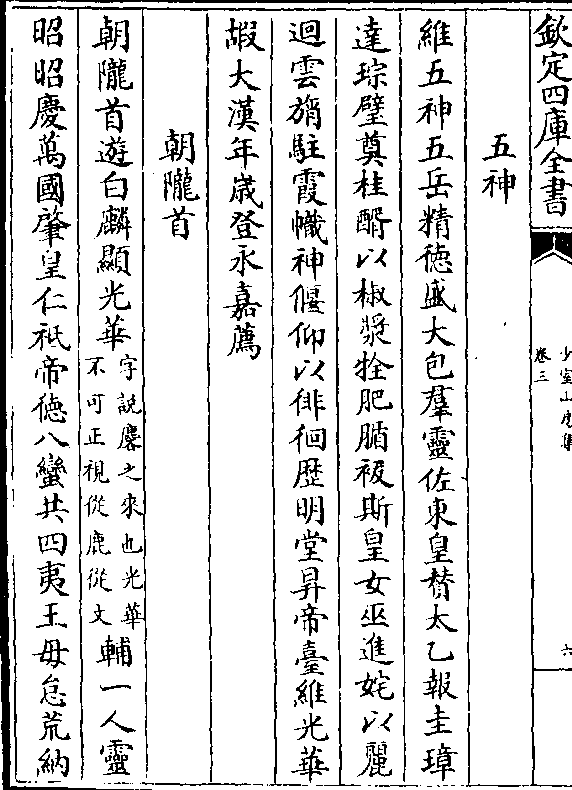 欽定四庫全書
卷三
六
五神
維五神五岳精德盛大包羣靈佐東皇替太乙報圭璋
達琮璧奠桂酹以椒漿牷肥腯祓斯皇女巫進姹以麗
迴雲旓駐霞幟神偃仰以徘徊歴明堂昇帝臺維光華
嘏大漢年嵗登永嘉薦
朝隴首
朝隴首遊白麟顯光華字説麐之來也光華不可正視從鹿從文輔一人靈
昭昭慶萬國肇皇仁祇帝德八蠻共四夷王毋怠荒納